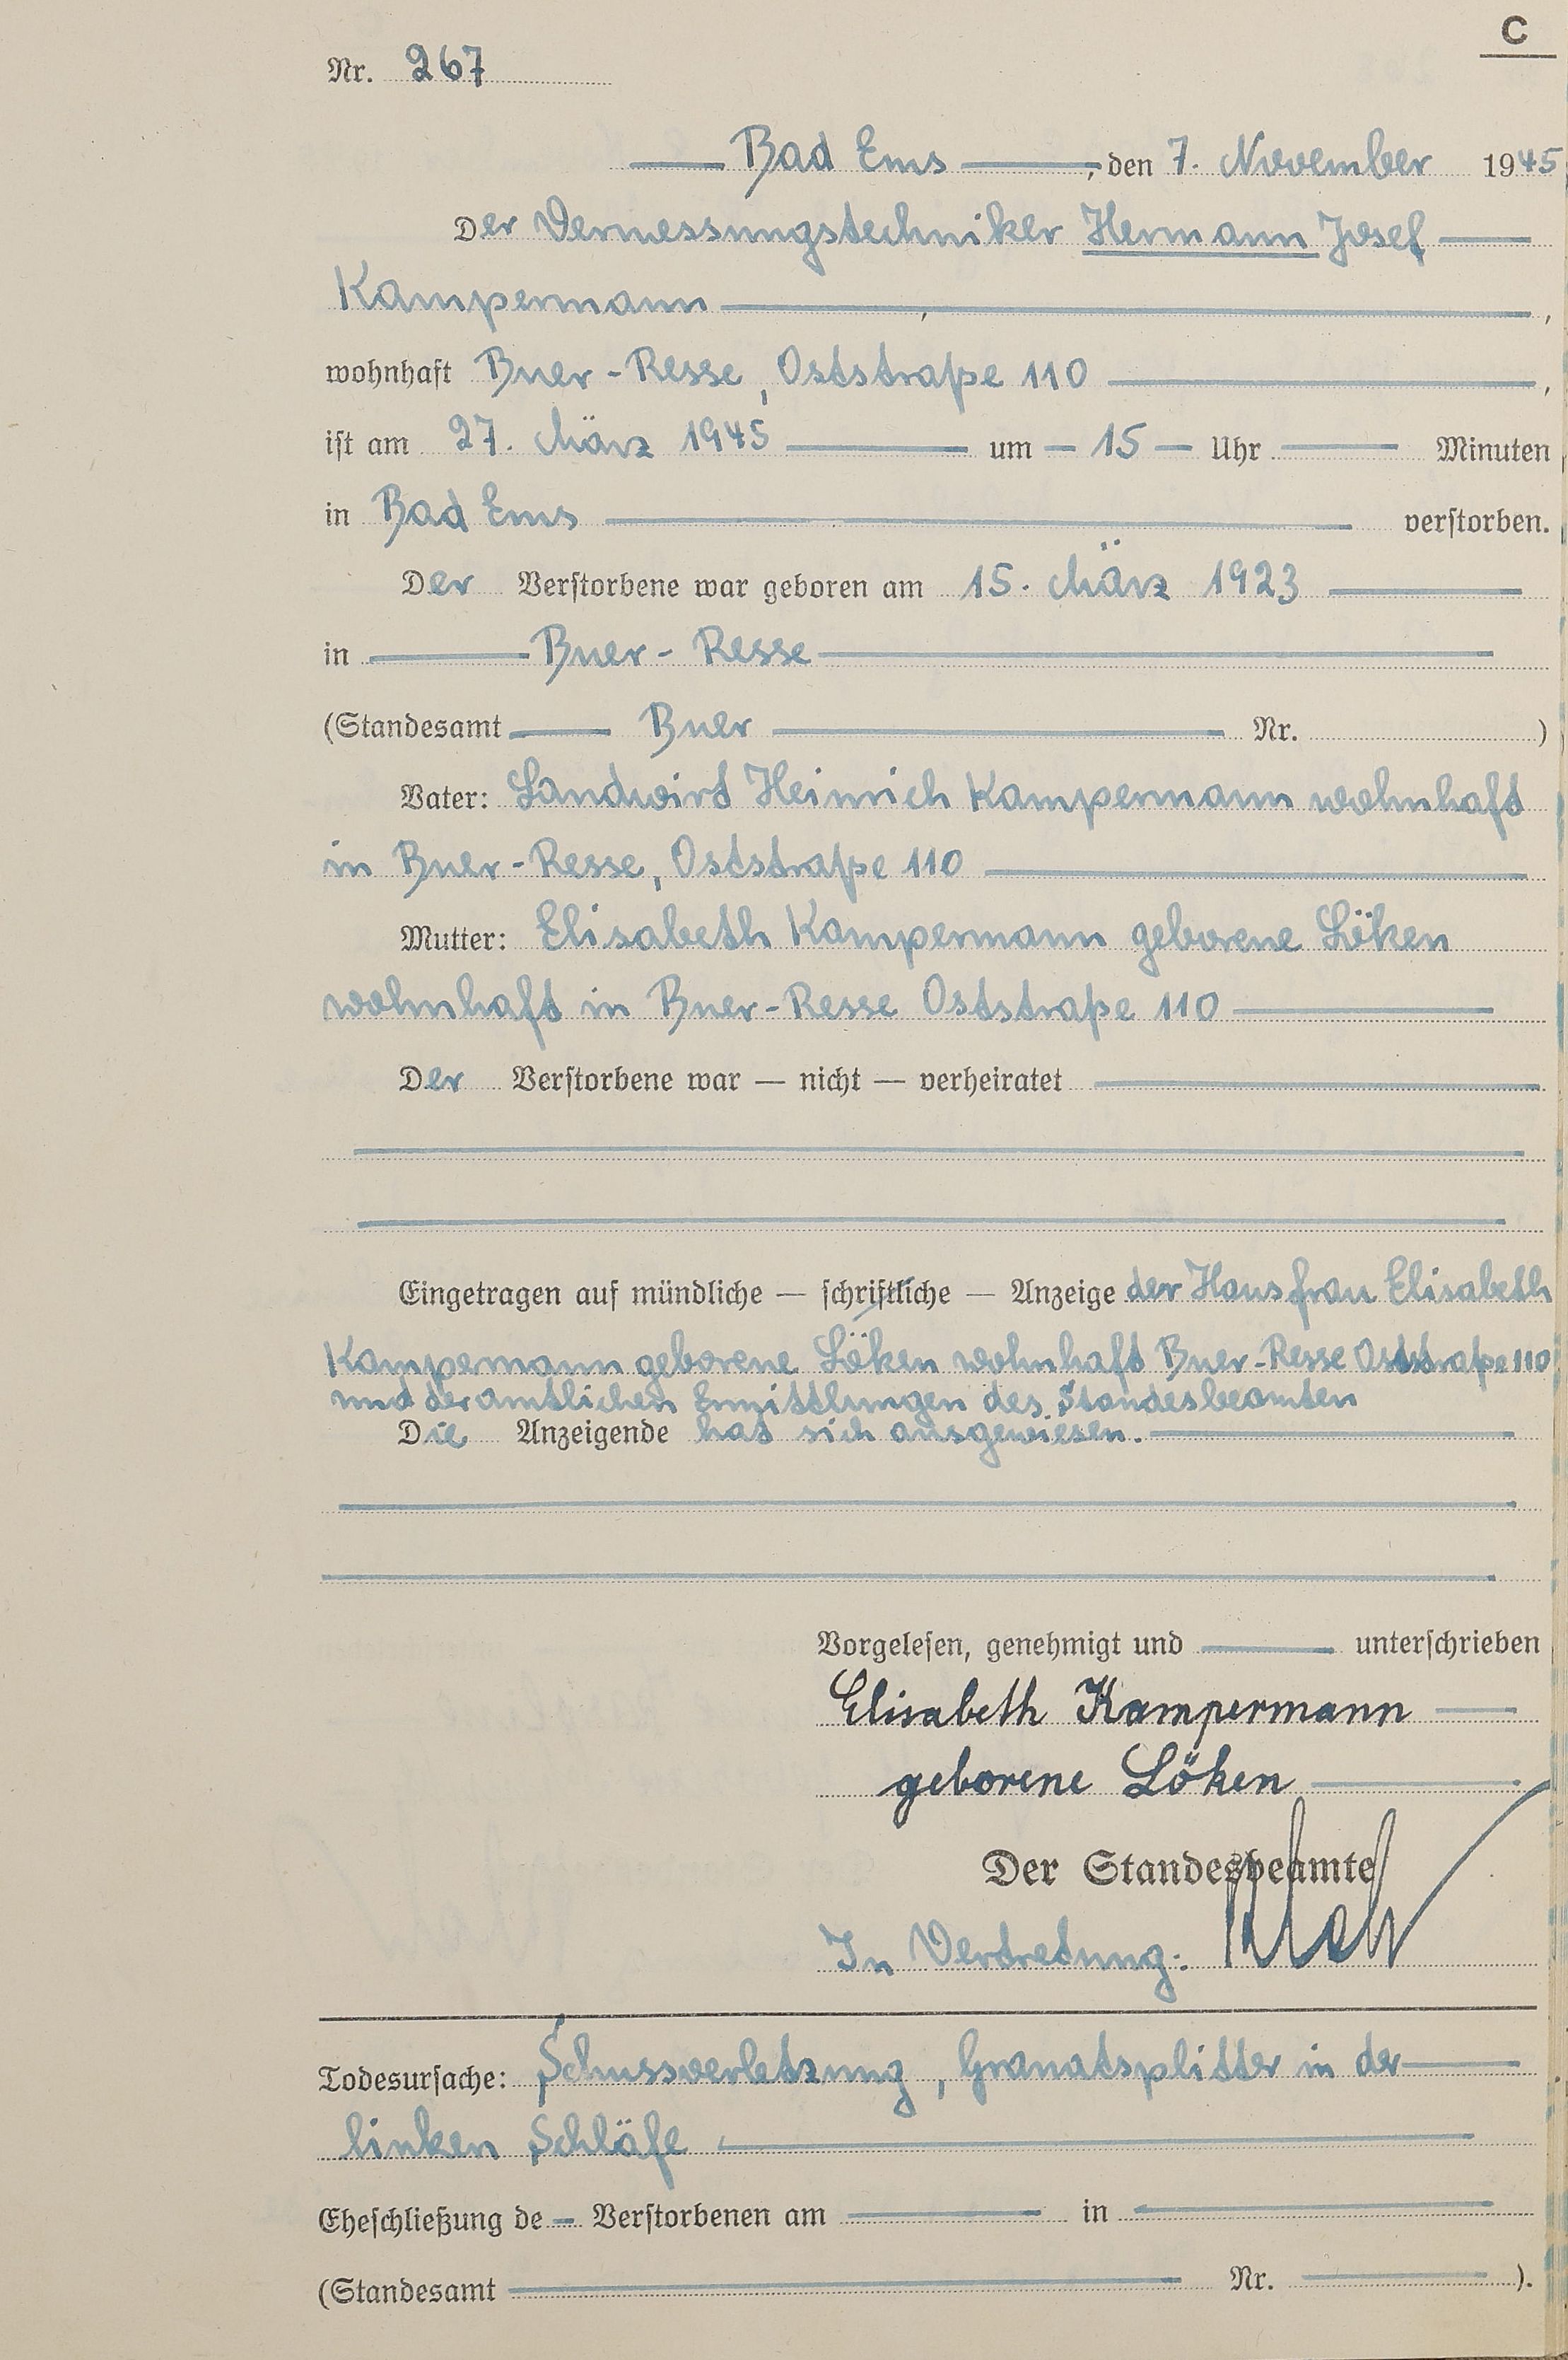 C
Nr. 267
Bad Ems, den 7. November 1945
Der Vermessungstechniker Hermann Josef
Kampermann,
wohnhaft Buer-Resse, Oststraße 110,
ist am 27. März 1945 um 15 Uhr Minuten
in Bad Ems verstorben.
Der Verstorbene war geboren am 15. März 1923
in Buer-Resse
(Standesamt Buer Nr. )
Vater: Landwirt Heinrich Kampermann wohnhaft
in Buer-Resse, Oststraße 110
Mutter: Elisabeth Kampermann geborene Löken
wohnhaft in Buer-Resse Oststraße 110
Der Verstorbene war — nicht — verheiratet
Eingetragen auf mündliche — schriftliche — Anzeige der Hausfrau Elisabeth
Kampermann geborene Löken wohnhaft Buer-Resse Oststraße 110
und der amtlichen Ermittlungen des Standesbeamten
Die Anzeigende hat sich ausgewiesen.
Vorgelesen, genehmigt und unterschrieben
Elisabeth Kampermann
geborene Löken
Der Standesbeamte
In Vertretung:
Todesursache: Schussverletzung, Granatsplitter in der
linken Schläfe
Eheschließung de Verstorbenen am in
(Standesamt Nr. ).